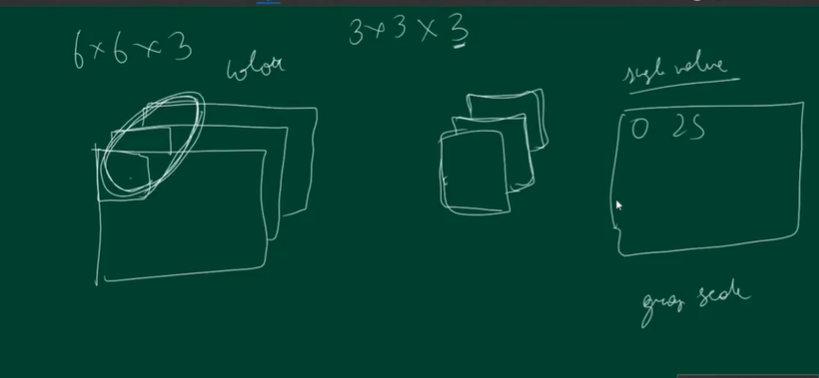 6×6×3
3×3×3
color
single value
0 25
gray scale